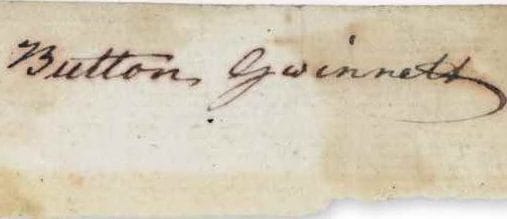 Button Gwinnett